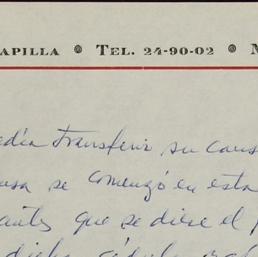 APILLA • TEL. 24-90-02 • M
edía transferir su caus
usa se comenzó en esta
antes que se diese el